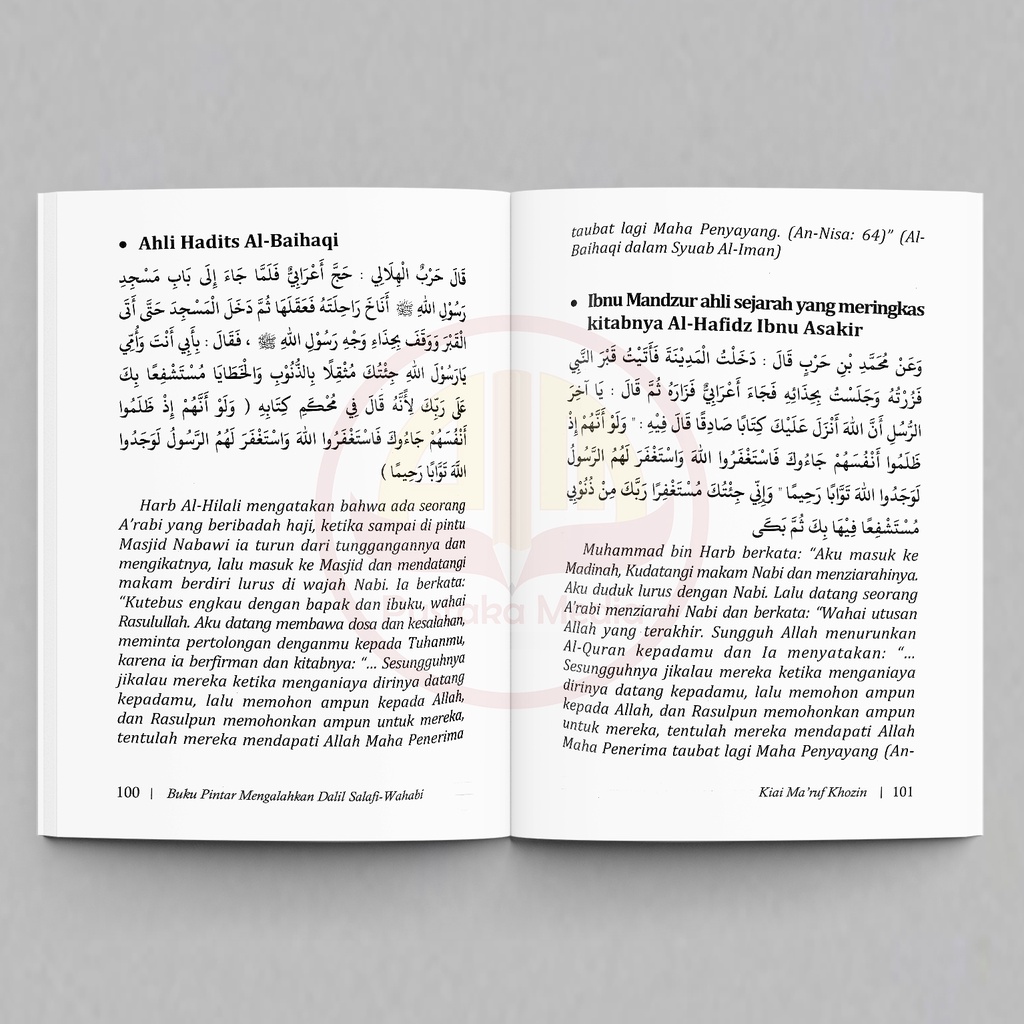 • Ahli Hadits Al-Baihaqi
قَالَ حَرْبٌ الْهِلَالِي : حَجَّ أَعْرَابِيٌّ فَلَمَّا جَاءَ إِلَى بَابِ مَسْجِدِ
رَسُوْلِ اللهِ ﷺ أَنَاخَ رَاحِلَتَهُ فَعَقَلَهَا ثُمَّ دَخَلَ الْمَسْجِدَ حَتَّى أَتَى
الْقَبْرَ وَوَقَفَ بِحِذَاءِ وَجْهِ رَسُوْلِ اللهِ ﷺ ، فَقَالَ : بِأَبِي أَنْتَ وَأُمِّي
يَارَسُوْلَ اللهِ جِئْتُكَ مُثْقِلًا بِالذُّنُوْبِ وَالْخَطَايَا مُسْتَشْفِعًا بِكَ
عَلَى رَبِّكَ لِأَنَّهُ قَالَ فِي مُحْكَمِ كِتَابِهِ ( وَلَوْ أَنَّهُمْ إِذْ ظَلَمُوا
أَنْفُسَهُمْ جَاءُوكَ فَاسْتَغْفَرُوا اللهَ وَاسْتَغْفَرَ لَهُمُ الرَّسُولُ لَوَجَدُوا
اللهَ تَوَّابًا رَحِيمًا )
Harb Al-Hilali mengatakan bahwa ada seorang
A'rabi yang beribadah haji, ketika sampai di pintu
Masjid Nabawi ia turun dari tunggangannya dan
mengikatnya, lalu masuk ke Masjid dan mendatangi
makam berdiri lurus di wajah Nabi. Ia berkata:
"Kutebus engkau dengan bapak dan ibuku, wahai
Rasulullah. Aku datang membawa dosa dan kesalahan,
meminta pertolongan denganmu kepada Tuhanmu,
karena ia berfirman dan kitabnya: "... Sesungguhnya
jikalau mereka ketika menganiaya dirinya datang
kepadamu, lalu memohon ampun kepada Allah,
dan Rasulpun memohonkan ampun untuk mereka,
tentulah mereka mendapati Allah Maha Penerima
100 | Buku Pintar Mengalahkan Dalil Salafi-Wahabi
taubat lagi Maha Penyayang. (An-Nisa: 64)" (Al-
Baihaqi dalam Syuab Al-Iman)
• Ibnu Mandzur ahli sejarah yang meringkas
kitabnya Al-Hafidz Ibnu Asakir
وَعَنْ مُحَمَّدِ بْنِ حَرْبٍ قَالَ : دَخَلْتُ الْمَدِيْنَةَ فَأَتَيْتُ قَبْرَ النَّبِي
فَزُرْتُهُ وَجَلَسْتُ بِحِذَائِهِ فَجَاءَ أَعْرَابِيٌّ فَزَارَهُ ثُمَّ قَالَ : يَا آخِرَ
الرُّسُلِ أَنَّ اللهَ أَنْزَلَ عَلَيْكَ كِتَابًا صَادِقًا قَالَ فِيْهِ : " وَلَوْ أَنَّهُمْ إِذْ
ظَلَمُوا أَنْفُسَهُمْ جَاءُوكَ فَاسْتَغْفَرُوا اللهَ وَاسْتَغْفَرَ لَهُمُ الرَّسُولُ
لَوَجَدُوا اللهَ تَوَّابًا رَحِيمًا " وَإِنِّي جِئْتُكَ مُسْتَغْفِرًا رَبَّكَ مِنْ ذُنُوْبِي
مُسْتَشْفِعًا فِيْهَا بِكَ ثُمَّ بَكَى
Muhammad bin Harb berkata: "Aku masuk ke
Madinah, Kudatangi makam Nabi dan menziarahinya.
Aku duduk lurus dengan Nabi. Lalu datang seorang
A'rabi menziarahi Nabi dan berkata: "Wahai utusan
Allah yang terakhir. Sungguh Allah menurunkan
Al-Quran kepadamu dan Ia menyatakan: "...
Sesungguhnya jikalau mereka ketika menganiaya
dirinya datang kepadamu, lalu memohon ampun
kepada Allah, dan Rasulpun memohonkan ampun
untuk mereka, tentulah mereka mendapati Allah
Maha Penerima taubat lagi Maha Penyayang (An-
Kiai Ma'ruf Khozin | 101
Pustaka Media